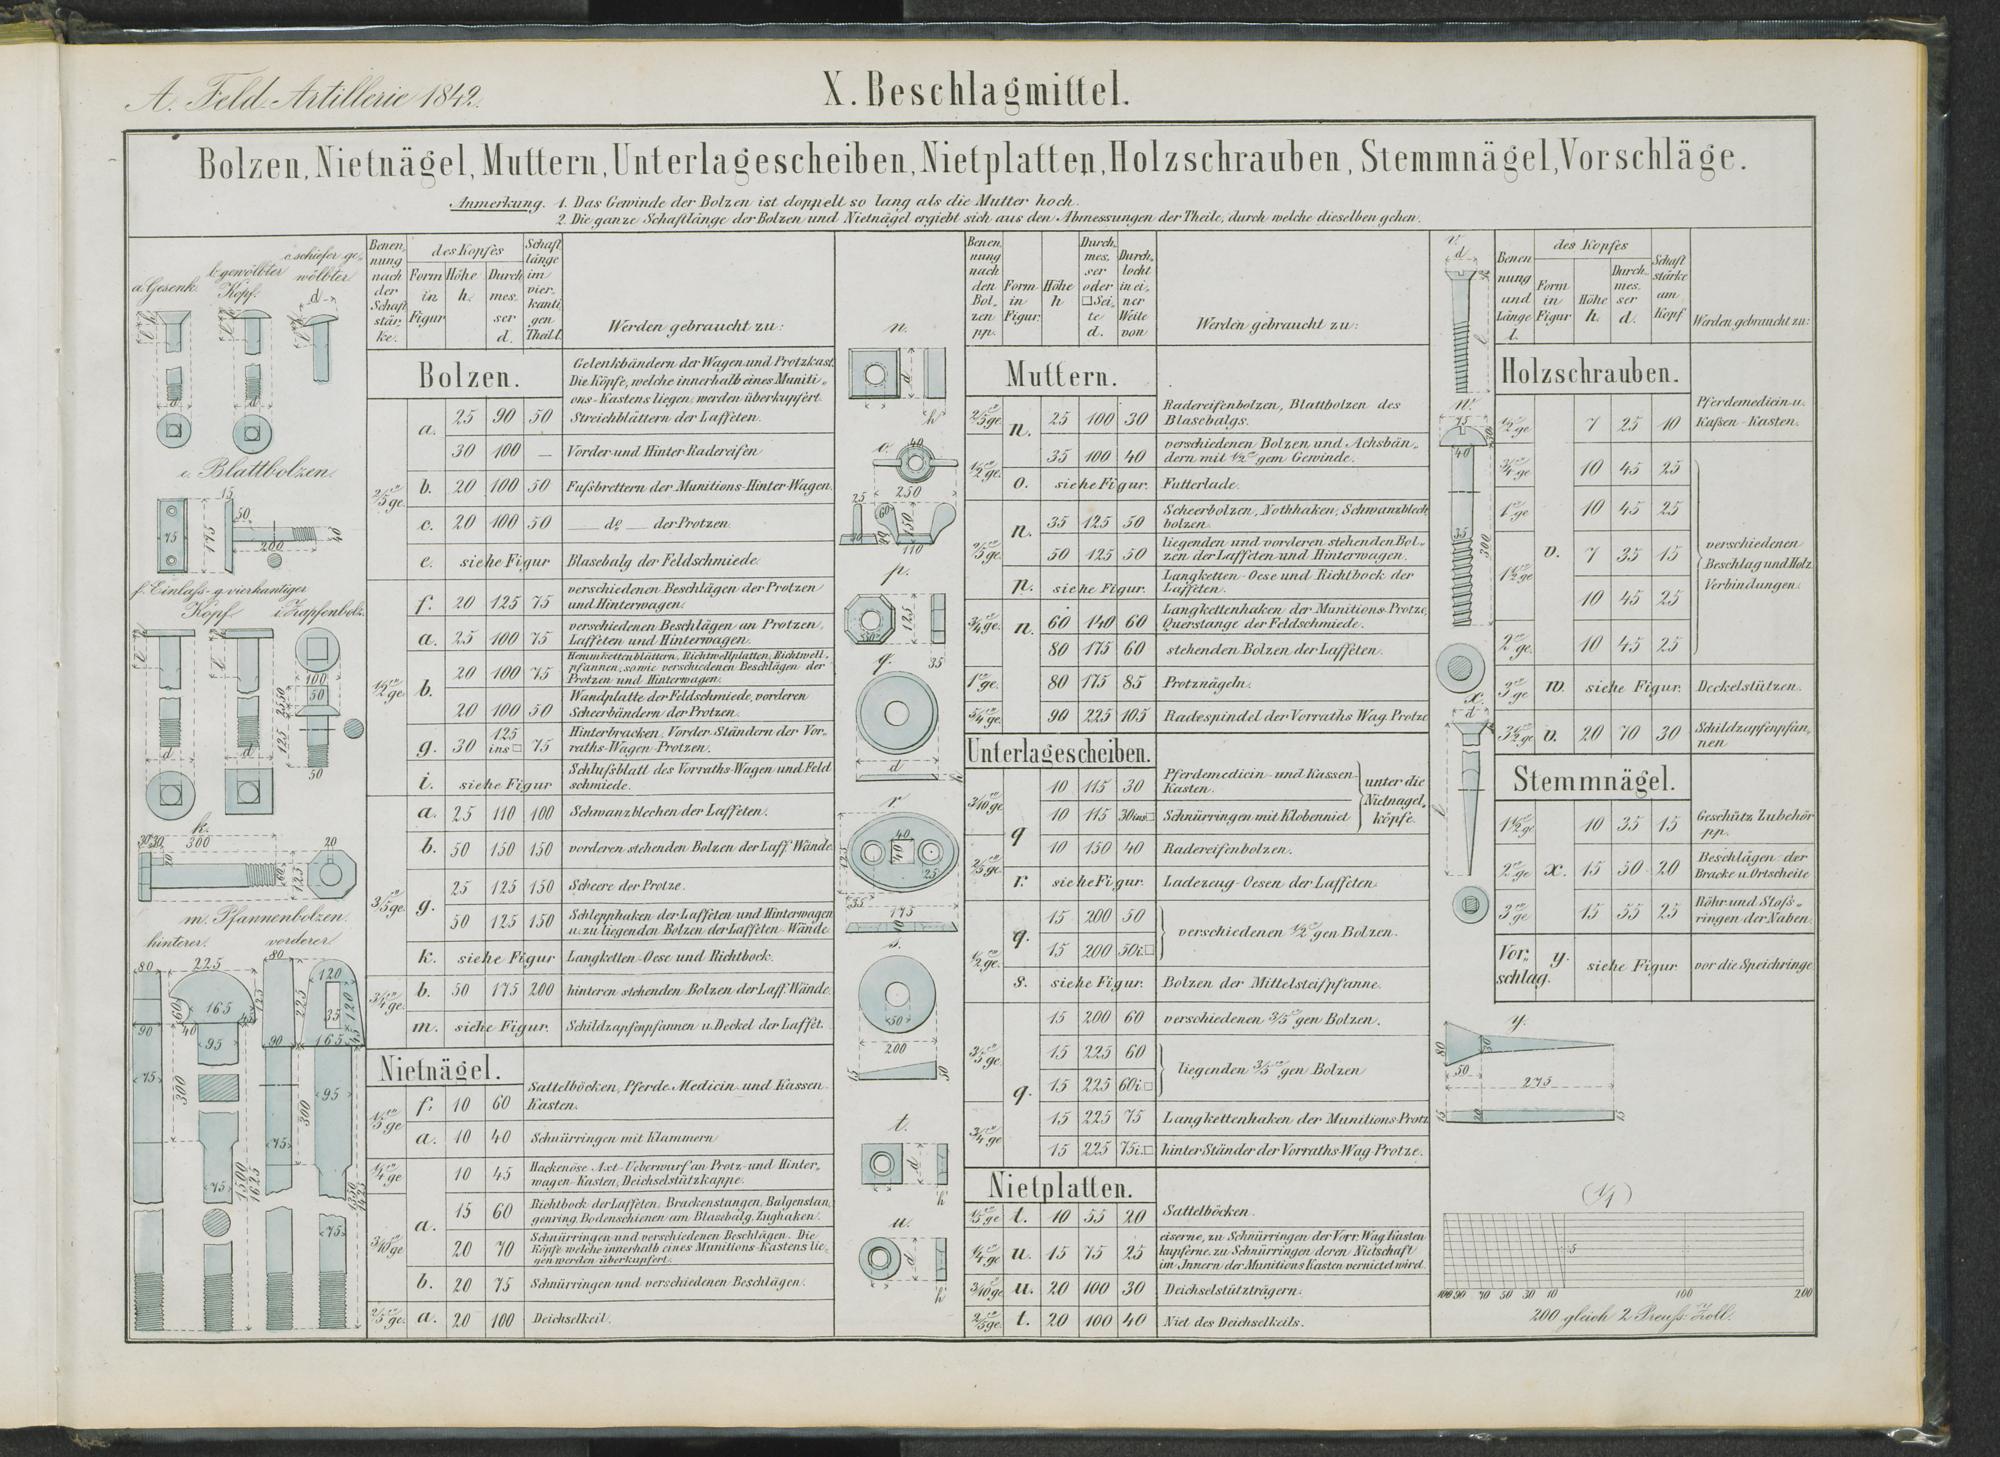 A. Feld-Artillerie 1842.
X. Beschlagmittel.
Bolzen, Nietnägel, Muttern, Unterlagescheiben, Nietplatten, Holzschrauben, Stemmnägel, Vorschläge.
Anmerkung. 1. Das Gewinde der Bolzen ist doppelt so lang als die Mutter hoch.
2. Die ganze Schaftlänge der Bolzen und Nietnägel ergiebt sich aus den Abmessungen der Theile, durch welche dieselben gehen.
a. Gesenk.
b. gewölbter
Kopf.
c. schiefer ge-
wölbter
e. Blattbolzen.
15
50
75
175
200
40
f. Einlass- g. vierkantiger
Kopf
i. Zapfenbolz.
100
50
125
50
k.
300
20
60
125
m. Pfannenbolzen.
hinterer. vorderer.
80 225 80
120
60 165 125 225
35 120
90 40 45 90 165
95
75 300 95
75 300
75 1500 1625
75
Benen-
nung
nach
der
Schaft
stär-
ke.
des Kopfes
Form
in
Figur
Höhe
h.
Durch
mes-
ser
d.
Schaft
länge
im
vier-
kanti
gen
Theil l.
Werden gebraucht zu:
Bolzen.
Gelenkbändern der Wagen und Protzkast.
Die Köpfe, welche innerhalb eines Muniti-
ons-Kastens liegen, werden überkupfert
2/5 ge. a. 25 90 50 Streichblättern der Laffeten.
30 100 — Vorder und Hinter Radereifen
b. 20 100 50 Fußbrettern der Munitions-Hinter-Wagen.
c. 20 100 50 — do — der Protzen.
e. siehe Figur Blasebalg der Feldschmiede.
1/2 ge. f. 20 125 75 verschiedenen Beschlägen der Protzen
und Hinterwagen.
a. 25 100 75 verschiedenen Beschlägen an Protzen,
Laffeten und Hinterwagen.
b. 20 100 75 Hemmkettenblättern, Richtwellplatten, Richtwell-
pfannen, sowie verschiedenen Beschlägen der
Protzen und Hinterwagen.
20 100 50 Wandplatte der Feldschmiede, vorderen
Scheerbändern der Protzen.
g. 30 125 ins □ 75 Hinterbracken, Vorder-Ständern der Vor-
raths-Wagen-Protzen.
i. siehe Figur Schlußblatt des Vorraths-Wagen und Feld
schmiede.
3/5 ge. a. 25 110 100 Schwanzblechen der Laffeten.
b. 50 150 150 vorderen stehenden Bolzen der Laff. Wände.
g. 25 125 150 Scheere der Protze.
50 125 150 Schlepphaken der Laffeten und Hinterwagen
u. zu liegenden Bolzen der Laffeten-Wände.
k. siehe Figur Langketten-Oese und Richtbock.
3/4 ge. b. 50 175 200 hinteren stehenden Bolzen der Laff. Wände.
m. siehe Figur. Schildzapfenpfannen u. Deckel der Laffet.
Nietnägel.
1/5 ge. f. 10 60 Sattelböcken, Pferde-Medicin- und Kassen-
Kasten.
a. 10 40 Schnürringen mit Klammern
1/4 ge a. 10 45 Hackenöse Axt-Ueberwurf an Protz- und Hinter-
wagen-Kasten, Deichselstützkappe.
3/10 ge 15 60 Richtbock der Laffeten, Brackenstangen, Balgenstan-
genring, Bodenschienen am Blasebalg, Zughaken.
20 70 Schnürringen und verschiedenen Beschlägen. Die
Köpfe welche innerhalb eines Munitions-Kastens lie-
gen werden überkupfert.
b. 20 75 Schnürringen und verschiedenen Beschlägen.
2/5 ge. a. 20 100 Deichselkeil.
n.
d
h
o.
40
250
25
60
150
110
p.
50
125
35
q.
d
h
r.
40
40
25
125
35
175
s.
50
200
15
50
t.
d
h
u.
d
h
Benen
nung
nach
den
Bol-
zen
pp.
Form
in
Figur.
Höhe
h
Durch-
mes-
ser
oder
□ Sei-
te
d.
Durch-
locht
in ei-
ner
Weite
von
Werden gebraucht zu:
Muttern.
2/5 ge. n. 25 100 30 Radereifenbolzen, Blattbolzen des
Blasebalgs.
1/2 ge. 35 100 40 verschiedenen Bolzen und Achsbän-
dern mit 1/2 gem Gewinde.
o. siehe Figur. Futterlade.
3/5 ge. n. 35 125 50 Scheerbolzen, Nothhaken, Schwanzblech
bolzen.
50 125 50 liegenden und vorderen stehenden Bol-
zen der Laffeten und Hinterwagen.
n. siehe Figur. Langketten-Oese und Richtbock der
Laffeten.
3/4 ge. n. 60 140 60 Langkettenhaken der Munitions-Protze,
Querstange der Feldschmiede.
80 175 60 stehenden Bolzen der Laffeten.
1 ge. 80 175 85 Protznägeln.
5/4 ge. 90 225 105 Radespindel der Vorraths Wag. Protze
Unterlagescheiben.
3/10 ge q 10 115 30 Pferdemedicin- und Kassen-
Kasten.
10 115 30 ins □ Schnürringen mit Klobenniet
unter die
Nietnagel-
köpfe.
2/5 ge. 10 150 40 Radereifenbolzen.
r. siehe Figur. Ladezeug-Oesen der Laffeten
1/2 ge. q. 15 200 50
15 200 50 i. □
verschiedenen 1/2 gen Bolzen.
s. siehe Figur. Bolzen der Mittelsteifpfanne.
3/5 ge. q. 15 200 60 verschiedenen 3/5 gen Bolzen.
15 225 60
15 225 60 i. □
liegenden 3/5 gen Bolzen
3/4 ge 15 225 75 Langkettenhaken der Munitions-Protz.
15 225 75 i. □ hinter Ständer der Vorraths-Wag-Protze.
Nietplatten.
1/5 ge t. 10 55 20 Sattelböcken.
1/4 ge u. 15 75 25 eiserne, zu Schnürringen der Vorr. Wag. Kasten
kupferne, zu Schnürringen deren Nietschaft
im Innern der Munitions Kasten vernietet wird.
3/10 ge u. 20 100 30 Deichselstützträgern.
2/5 ge. t. 20 100 40 Niet des Deichselkeils.
v.
d
l
w.
75
30
40
35
300
x.
d
l
Benen
nung
und
Länge
l.
des Kopfes
Form
in
Figur
Höhe
h.
Durch-
mes-
ser
d.
Schaft
stärke
am
Kopf
Werden gebraucht zu:
Holzschrauben.
1/2 ge v. 7 25 10 Pferdemedicin- u.
Kaßen-Kasten.
3/4 ge 10 45 25
1 ge 10 45 25
1 1/2 ge 7 35 15
10 45 25
2 ge. 10 45 25
verschiedenen
Beschlag und Holz
Verbindungen.
3 ge w. siehe Figur. Deckelstützen.
3 1/2 ge v. 20 70 30 Schildzapfenpfan-
nen
Stemmnägel.
1 1/2 ge x. 10 35 15 Geschütz Zubehör
pp.
2 ge 15 50 20 Beschlägen der
Bracke u. Ortscheite
3 ge 15 55 25 Röhr und Stoß-
ringen der Naben.
Vor-
schlag. y. siehe Figur vor die Speichringe.
y.
80
30
50
275
15
20
15
(1/1)
5
100 90 70 50 30 10 100 200
200 gleich 2 Preuß. Zoll.